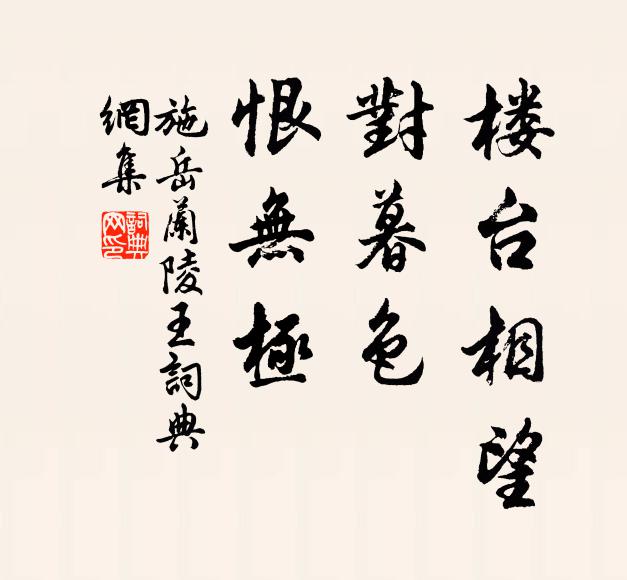 楼台相望
對暮色
恨無極
施岳蘭陵王詞典
網集
詞典网印